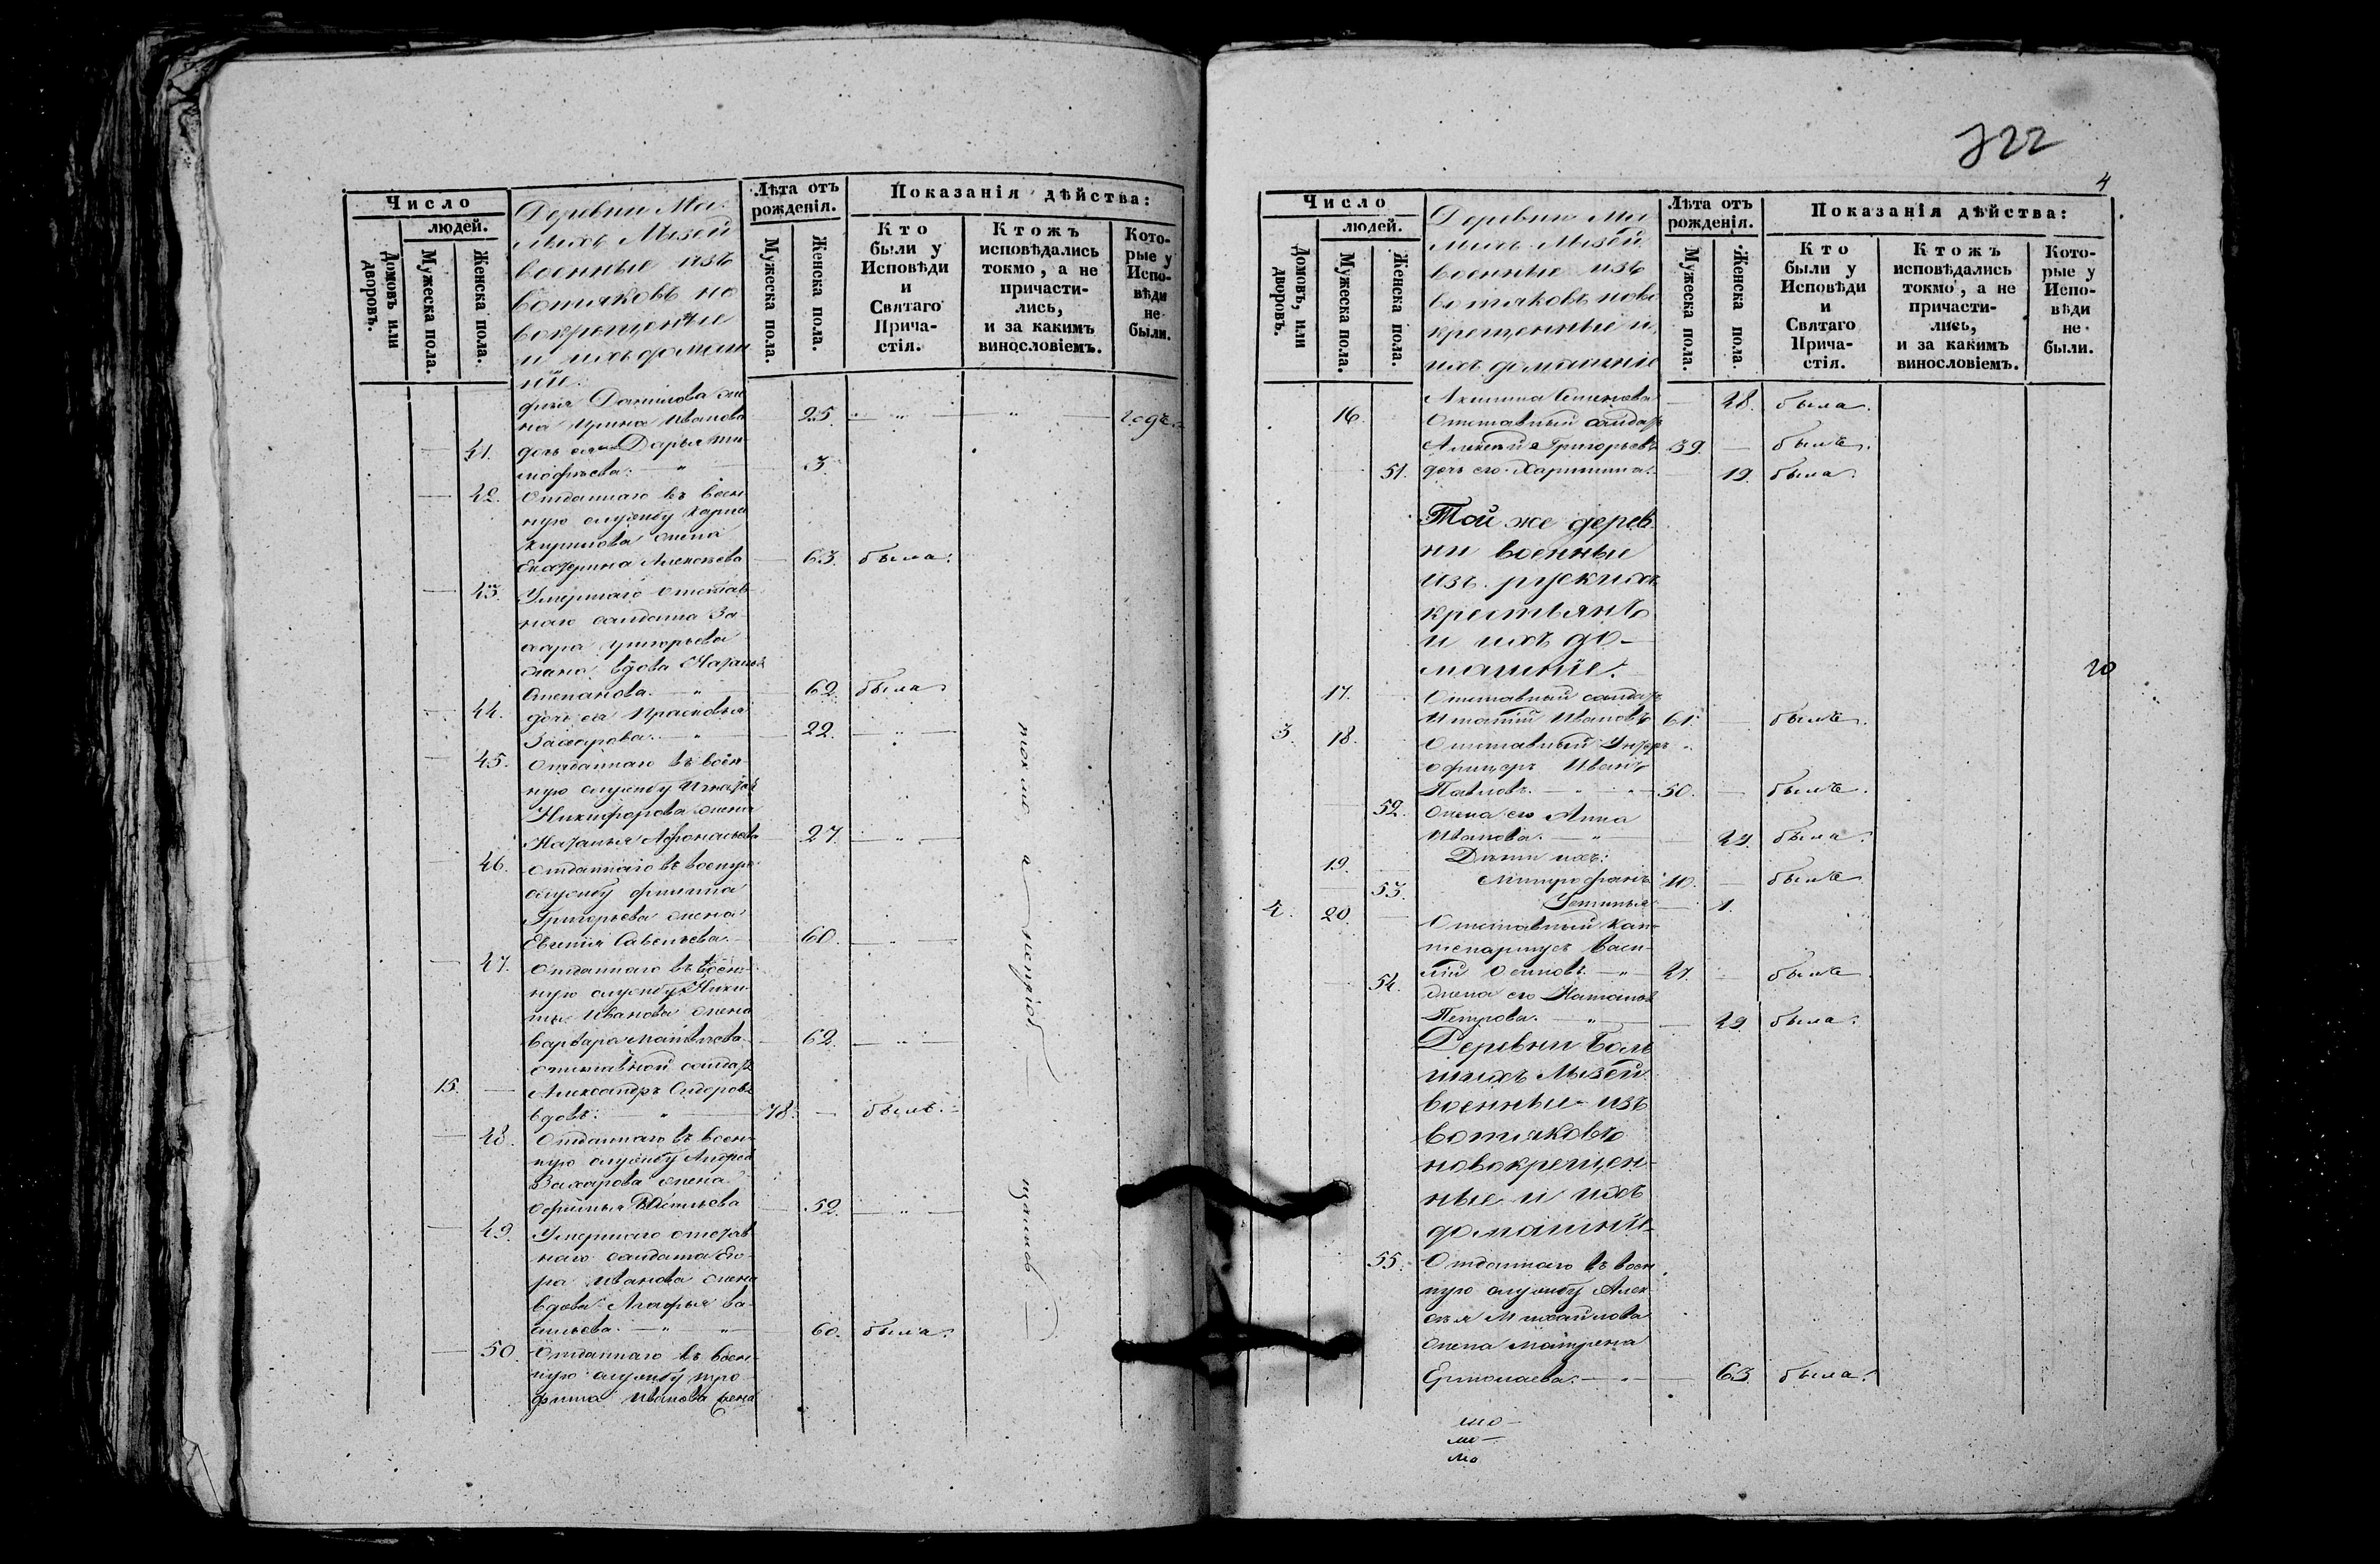 Число
людей.
Домовъ или дворовъ.
Мужеска пола.
Женска пола.
Деревни Ма-
лыхъ Мызей
военные изъ
вотяковъ но
вокрещенные
и ихъ домаш
ніе.
Лѣта отъ рожденія.
Мужеска пола.
Женска пола.
Показанія дѣйства:
Кто были у Исповѣди и Святаго Прича-стія.
Ктожъ исповѣдались токмо, а не причасти-лись, и за какимъ винословіемъ.
Кото-рые у Испо-вѣди не были.
Данилова
на Ирина Иванова — 25.
41. дочь ея Дарья Ти
мофѣева. — 3.
42. Отданнаго въ воен
ную службу Карпа
Кирилова жена
Екатерина Алексѣева — 63. была.
43. Умершаго отстав
наго салдата За-
хара Григорьева
жена вдова Наталья
Степанова. — 62. была
44. дочь ея Прасковья
Захарова. — 22.
45. Отданнаго въ воен-
ную службу Игнатья
Никифорова жена
Наталья Афонасьева — 27.
46. Отданнаго въ военную
службу Филипа
Григорьева жена
Евгенія Савельева. — 60.
47. Отданнаго въ воен-
ную службу Ники-
ты Иванова жена
Варвара Матвѣева — 62.
отставной салдатъ
15. — Александръ Сидоровъ
вдовъ. 78. — былъ.
48. Отданнаго въ воен-
ную службу Андрея
Захарова жена
— 52.
49. Умершаго отстав
наго салдата Его-
ра Иванова жена
вдова Агафья Ва-
сильева. — 60. была.
50. Отданнаго въ воен-
ную службу Тро-
фима Иванова жена
722
4
Число
людей.
Домовъ, или дворовъ.
Мужеска пола.
Женска пола.
Деревни Ма
лыхъ Мызей
военные изъ
вотяковъ ново
крещенные и
ихъ домашніе
Лѣта отъ рожденія.
Мужеска пола.
Женска пола.
Показанія дѣйства:
Кто были у Исповѣди и Святаго Прича-стія.
Ктожъ исповѣдались токмо, а не причасти-лись, и за какимъ винословіемъ.
Кото-рые у Испо-вѣди не были.
Акилина Семенова — 48. была.
16. Отставный салдатъ
Алексѣй Григорьевъ 39. — былъ.
51. дочь его Харитина. — 19. была.
Той же дерев
ни военные
изъ рускихъ
крестьянъ
и ихъ до-
машніе.
20
17. Отставный салдатъ
Игнатій Ивановъ 61. — былъ.
3. 18. Отставный Унтеръ
офицеръ Иванъ
Павловъ. 50. — былъ.
52. жена его Анна
Иванова. — была.
Дѣти ихъ:
19. Митрофанъ 10. — былъ
53. Устинья — 1.
4. 20. Отставный кап-
тенармусъ Васи-
лій Осиповъ. 27. — былъ
54. жена его Наталья
Петрова. — 29. была.
Деревни Боль
шихъ Мызей
военные изъ
вотяковъ
новокрещен-
ные и ихъ
домашніе
55. Отданнаго въ воен
ную службу Алек-
сѣя Михайлова
жена Матрена
Ермолаева. — 63. была.